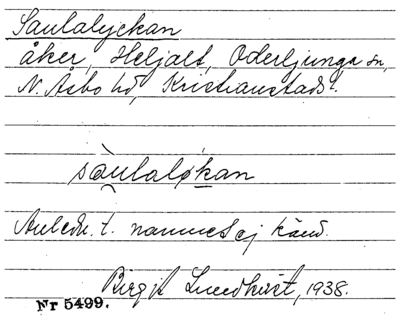 Saulalyckan
åker, Heljalt, Oderljunga sn,
N. Åsbo hd, Kristianstads l.
sạ̀ulaløkan
Anledn. t. namnet ej känd.
Birgit Lundkvist, 1938.
Nr 5499.